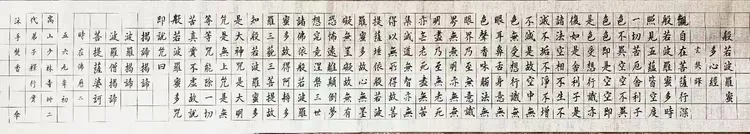 般若波羅蜜
多心經
玄奘譯
觀自在菩薩行深
般若波羅蜜多時
照見五蘊皆空度
一切苦厄舍利子
色不異空空不異
色色即是空空即
是色受想行識亦
復如是舍利子是
諸法空相不生不
滅不垢不淨不增
不減是故空中無
色無受想行識無
眼耳鼻舌身意無
色聲香味觸法無
眼界乃至無意識
界無無明亦無無
明盡乃至無老死
亦無老死盡無苦
集滅道無智亦無
得以無所得故菩
提薩埵依般若波
羅蜜多故心無罣
礙無罣礙故無有
恐怖遠離顛倒夢
想究竟涅槃三世
諸佛依般若波羅
蜜多故得阿耨多
羅三藐三菩提故
知般若波羅蜜多
是大神咒是大明
咒是無上咒是無
等等咒能除一切
苦真實不虛故說
般若波羅蜜多咒
即說咒曰
揭諦揭諦
波羅揭諦
波羅僧揭諦
菩提薩婆訶
時在佛
五六九年初
嵩山少林寺
代弟子釋行
沐手焚香